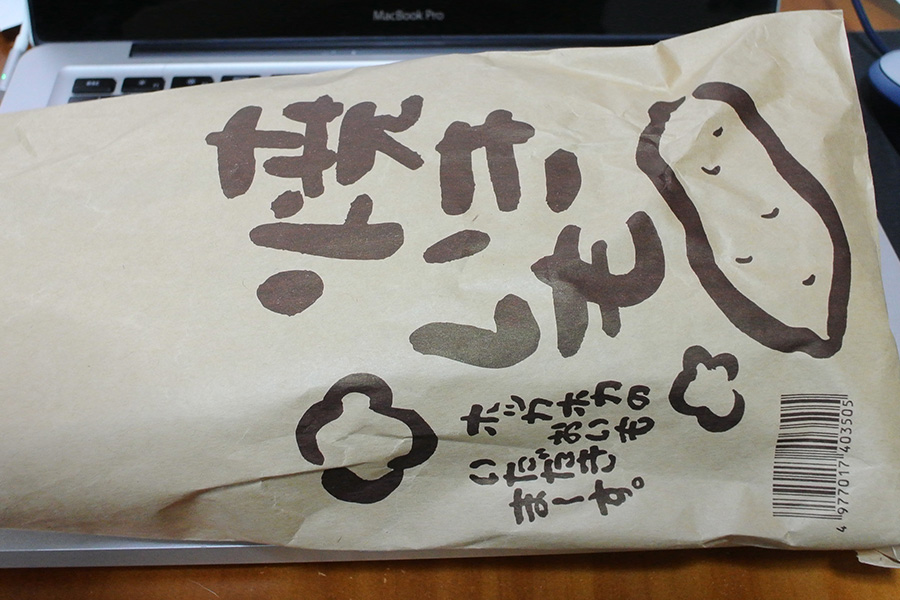 MacBook Pro
esc
焼きいも
ホッカホカの
おいも
いただき
ま〜す。
4 977017 403505